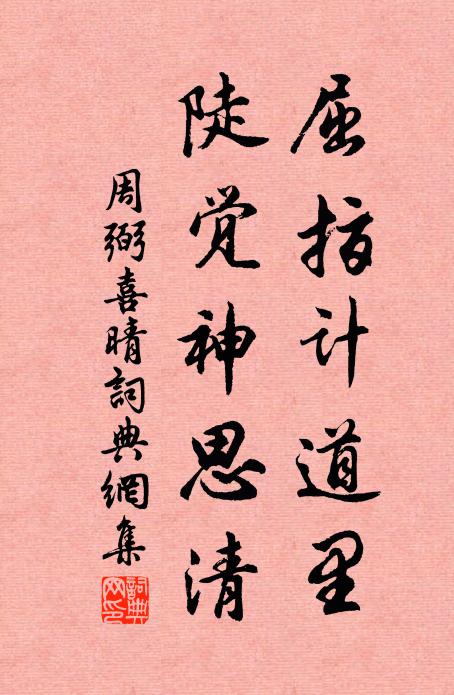 屈指计道里
陡觉神思清
周弼喜晴詞典網集
詞典网印